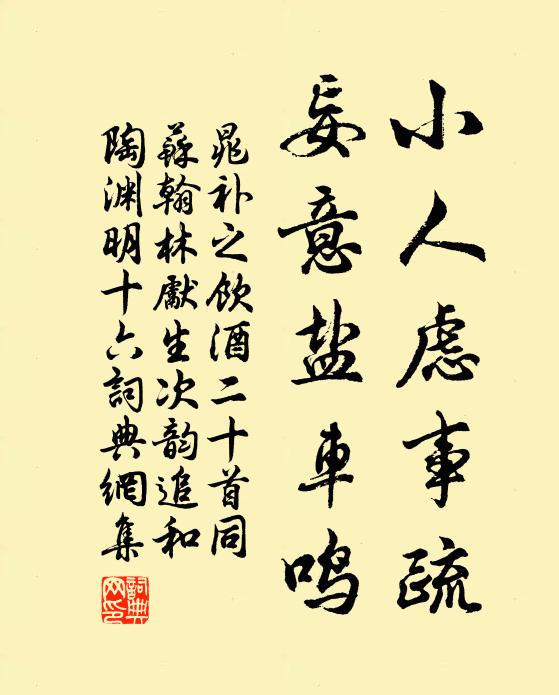 小人虑事疏
妄意盐车鸣
晁补之饮酒二十首同
蘇翰林獻生次韵追和
陶渊明十六詞典網集
詞典網印